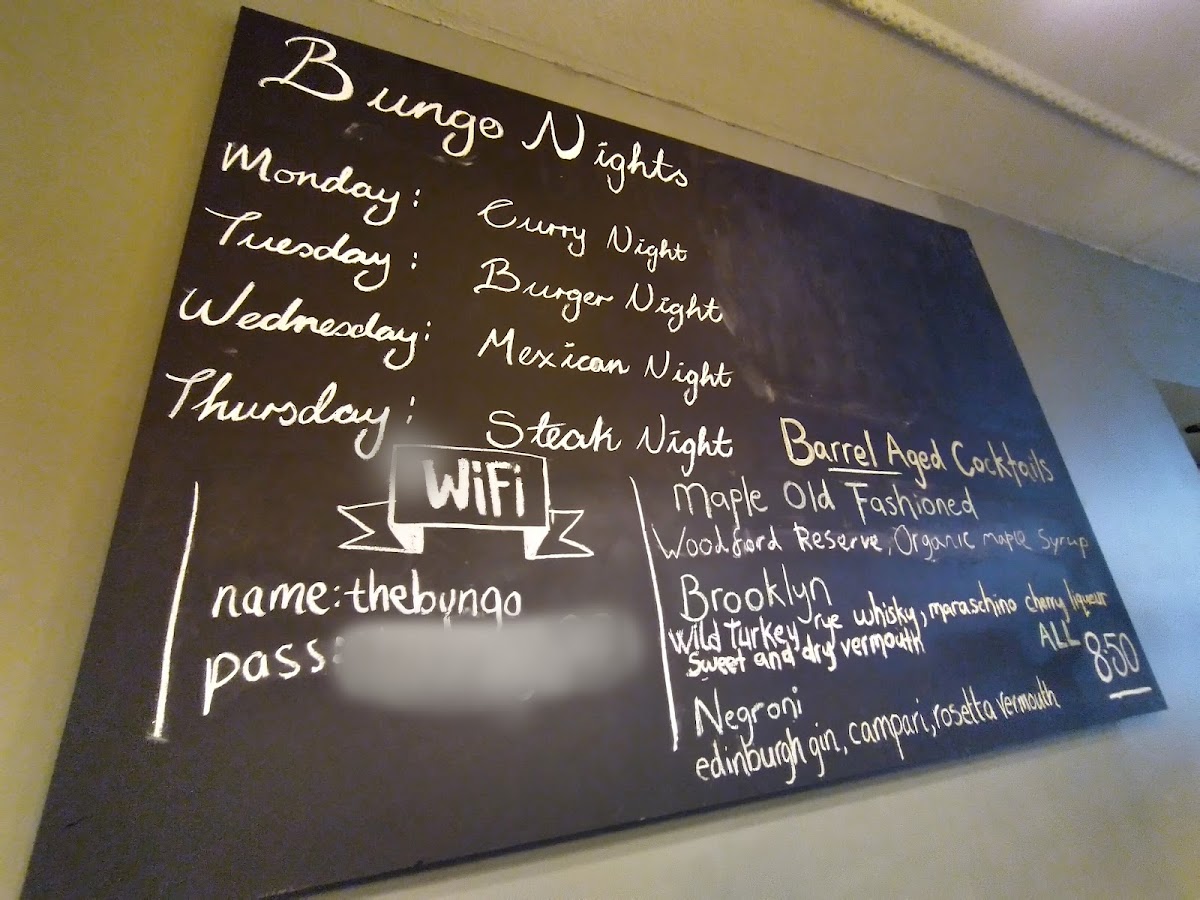 Bungo Nights
Monday: Curry Night
Tuesday: Burger Night
Wednesday: Mexican Night
Thursday: Steak Night
WiFi
name:thebungo
pass:
Barrel Aged Cocktails
Maple Old Fashioned
Woodford Reserve, Organic maple Syrup
Brooklyn
Wild Turkey rye whisky, maraschino cherry liqueur
Sweet and dry vermouth
ALL 8.50
Negroni
edinburgh gin, campari, rosetta vermouth